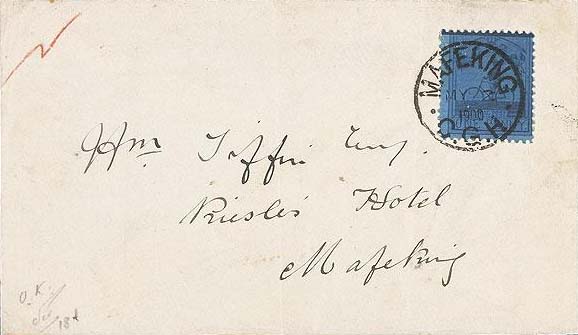 MAFEKING
MY
1900
C.G.H.
Wm Tiffin Esq.
Riesle's Hotel
Mafeking
O.K.